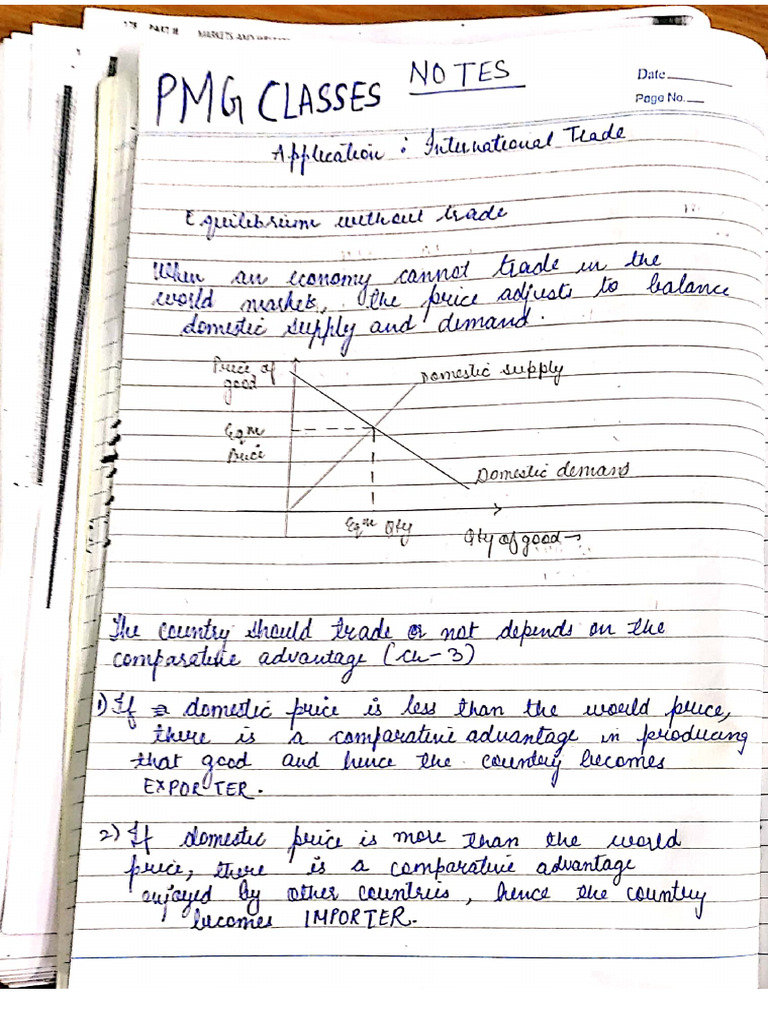 178 PART II MARKETS AND
PMG CLASSES NOTES
Date
Page No.
Application : International Trade
Equilibrium without trade
When an economy cannot trade in the
world market, the price adjusts to balance
domestic supply and demand.
Price of
good
Domestic supply
Eqm
Price
Domestic demand
Eqm Qty
Qty of good→
The country should trade or not depends on the
comparative advantage (Ch-3)
1) If domestic price is less than the world price,
there is a comparative advantage in producing
that good and hence the country becomes
EXPORTER.
2) If domestic price is more than the world
price, there is a comparative advantage
enjoyed by other countries, hence the country
becomes IMPORTER.